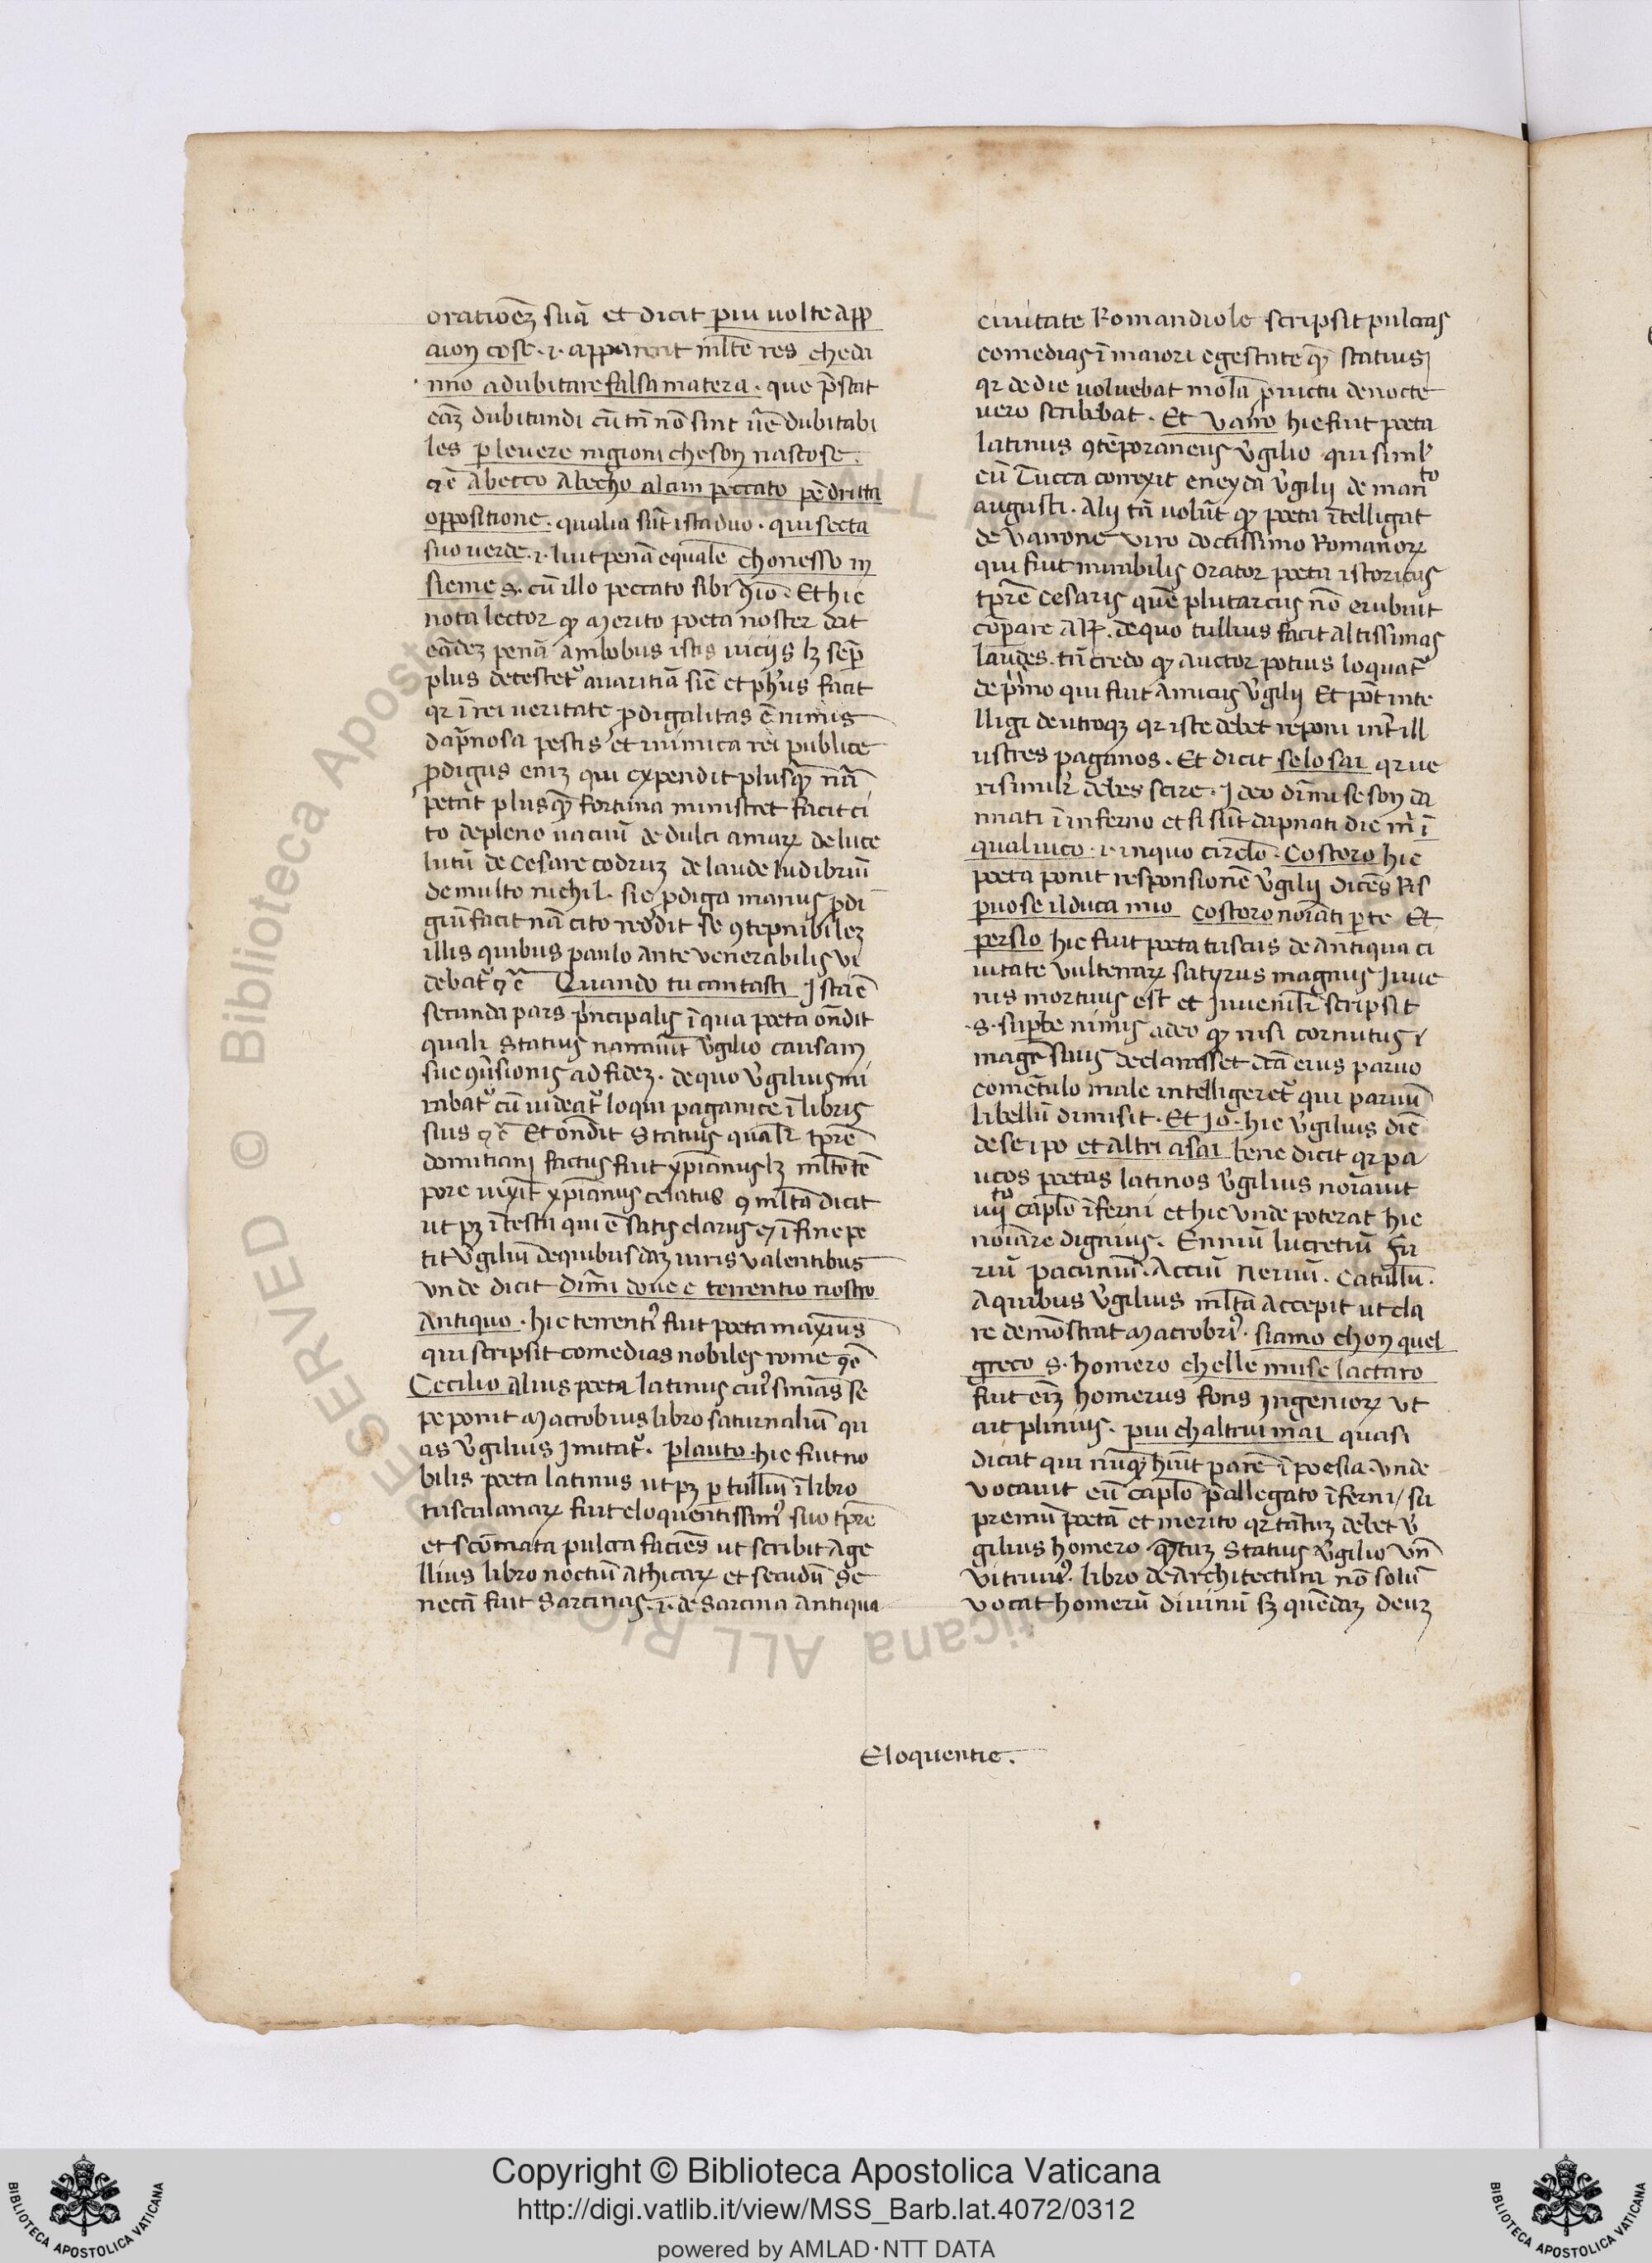 oratiōeȝ suā et dicit piu uolte app
aion cose · i · apparent mlte res che da
nno a dubitare falsa matera · que p̄stat
cāȝ dubitandi cū tn̄ nō sint u͛e dubitabi
les p le uere ragioni che son nascose.
⁊ ē Abecco Alecho alcun peccato pe dritta
oppositione · qualia sūt ista duo · qui secca
suo uerde · i · luit penā equalē chon esso in
sieme s. cū illo peccato sibi
nota lector qƺ merito poeta noster dat
eādeȝ penā ambobus istis uicijs lȝ sēp
plus detestet᷑ auaritiā sic̄ et ph͛us facit
qr ī rei ueritate prodigalitas ē nimis
dāpnosa pestis et inimica rei publice
prodigus eniȝ qui expendit plusqƺ nā
petat plusqƺ fortuna ministret facit ci
to de pleno uacuū de dulci amarꝝ de luce
lutū de Cesare codruȝ de laude ludibriū
de multo nichil · sic prodiga manus prodi
giū facit nā cito reddit se ꝯtēpnibileȝ
illis quibus paulo ante venerabilis vi
debat᷑ ⁊ ē Quando tu cantasti Ista ē
secunda pars p͛ncipalis ī qua poeta on̄dit
quali͛ Statius narrauit v͛gilio causam
sue ꝯu͛sionis ad fideȝ · de quo v͛gilius mi
rabat᷑ cū uideat᷑ loqui paganice ī libris
suis ⁊ ē Et on̄dit Statius quali͛ tp̄re
domitiani factus fuit xp̄ianus lȝ mlto tē
pore uixit xp̄ianus celatus ⁊ mlta dicit
ut pȝ ī textu qui ē satis clarus ⁊ ī fine pe
tit v͛giliū de quibusdaȝ uiris valentibus
vnde dicit Dimi doue e terrentio nostro
Antiquo · hic terrenti᷒ fuit poeta maxim᷒
qui scripsit comedias nobiles rome ⁊ ē
Cecilio Alius poeta latinus cui᷒ sn̄ias se
pe ponit Macrobius libro saturnaliū qu
as v͛gilius Imitat᷑ · Plauto · hic fuit no
bilis poeta latinus ut pȝ p tulliū ī libro
tusculanarꝝ fuit eloquentissim᷒ suo tp̄re
et scōmata pulcra faciēs ut scribit Age
llius libro noctiū Athicarꝝ et secūdū Se
necā fuit Sarcinas · i · de Sarcina antiqua
ciuitate Romandiole scripsit pulcras
comedias ī maiori egestate qƺ statius
qr de die voluebat molā p uictu de nocte
uero scribebat · Et Varro hic fuit poeta
latinus ꝯtēporaneus v͛gilio qui simul
cū Tucca correxit eneyda v͛gilij de manᵗᵒ
augusti · Alij tn̄ uolūt qƺ poeta ītelligat
de Varrone viro doctissimo Romanorꝝ
qui fuit mirabilis orator poeta istoricus
tp̄re Cesaris quē plutarcus nō erubuit
cōparare de quo tullius facit altissimas
laudes · tn̄ credo qƺ auctor potius loquat᷑
de p͛mo qui fuit Amicus v͛gilij Et pōt inte
lligi de utroqȝ qr iste debet reponi int͛ ill
ustres paganos · Et dicit se lo sai qr ue
risimili͛ debes scire · Ideo dimi se son da
nnati ī inferno et si sūt dapnati dic mi ī
qual uico · i · in quo circl̄o · Costoro hic
poeta ponit responsionē v͛gilij dicēs Ris
puose il duca mio costoro noīati p te Et
persio hic fuit poeta tuscus de Antiqua ci
uitate vulterrarꝝ satyrus magnus Iuue
nis mortuus est et Iuuenili͛ scripsit
· s · supbe nimis adeo qƺ nisi cornutus
mag͛ suus declarasset dc̄a eius paruo
comētulo male intelligeret᷑ qui paruū
libellū dimisit · Et Io · hic v͛gilius dic̄
de se ipo et altri asai bene dicit qr pa
ucos poetas latinos v͛gilius noīauit
iiijᵗᵒ capl̄o īferni et hic vnde poterat hic
noīare dignius · Enniū lucretiū Fu
riū pacuuiū · Acciū Neuiū · Catullū ·
A quibus v͛gilius mlta accepit ut cla
re demōstrat Macrobi᷒ · siamo chon quel
greco s · homero che lle muse lactaro
fuit eīȝ homerus fons Ingeniorꝝ vt
ait plinius · piu ch altrui mai quasi
dicat qui nūqƺ h͛uit parē ī poesia · vnde
vocauit eū capl̄o p̄allegato īferni / su
premū poetā et merito qr tātuȝ debet v͛
gilius homero qƺtuȝ Statius v͛gilio vn̄
vitruui᷒ · libro de Architectura nō solū
vocat homerū diuinū sȝ quēdaȝ deuȝ
Eloquentie.
© Biblioteca Apostolica Vaticana ALL RIGHTS RESERVED
Copyright © Biblioteca Apostolica Vaticana
http://digi.vatlib.it/view/MSS_Barb.lat.4072/0312
powered by AMLAD·NTT DATA
BIBLIOTECA APOSTOLICA VATICANA
BIBLIOTECA APOSTOLICA VATICANA